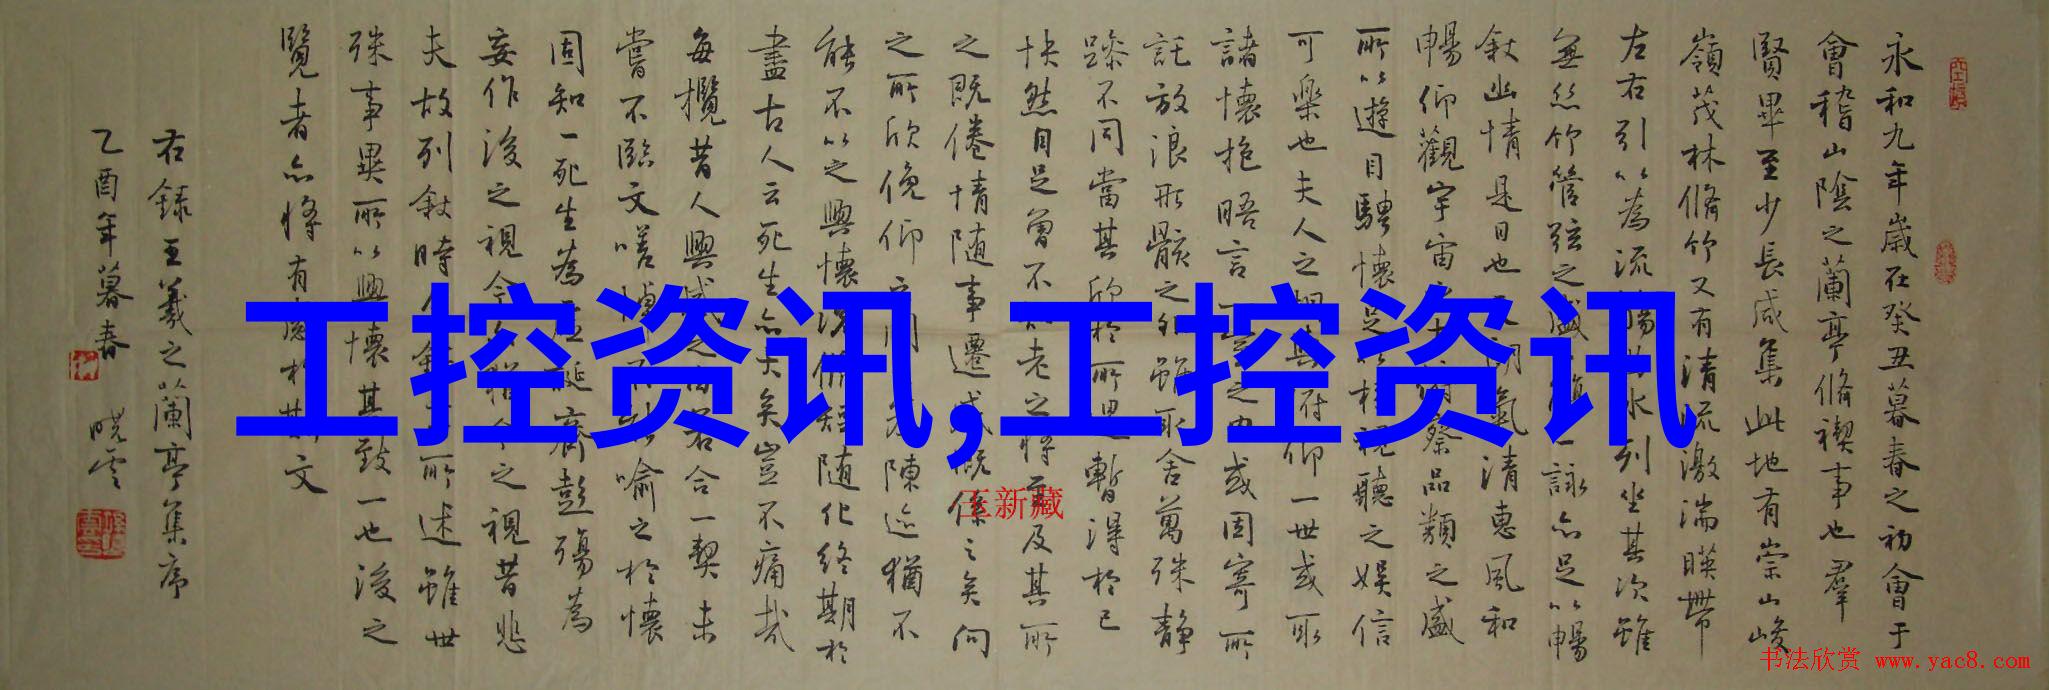 永和九年歲在癸丑暮春之初會于
會稽山陰之蘭亭脩禊事也羣
賢畢至少長咸集此地有崇山峻
嶺茂林脩竹又有清流激湍暎帶
左右引以為流觴曲水列坐其次雖
無絲竹管弦之盛一詠亦足以暢
叙幽情是日也天朗氣清惠風和
暢仰觀宇宙之大俯察品類之盛
所以遊目騁懷足以極視聽之娛信
可樂也夫人之相與俯仰一世或取
諸懷抱晤言一室之内或因寄所
託放浪形骸之外雖取舍萬殊静
躁不同當其欣於所遇暫得於己
快然自足曾不知老之將至及其所
之既倦情随事遷感慨係之矣向
之所欣俛仰之間以為陳迹猶不
能不以之興懷况脩短随化終期於
盡古人云死生亦大矣豈不痛哉
每攬昔人興感之由若合一契未
嘗不臨文嗟悼不能喻之於懷
固知一死生為虛誕齊彭殤為
妄作後之視今亦猶今之視昔悲
夫故列叙時人錄其所述雖世
殊事異所以興懷其致一也後之
覽者亦將有感於斯文
右錄王羲之蘭亭集序
乙酉年暮春 晓雲
工控资讯,工控资讯
王新藏
书法欣赏 www.yac8.com